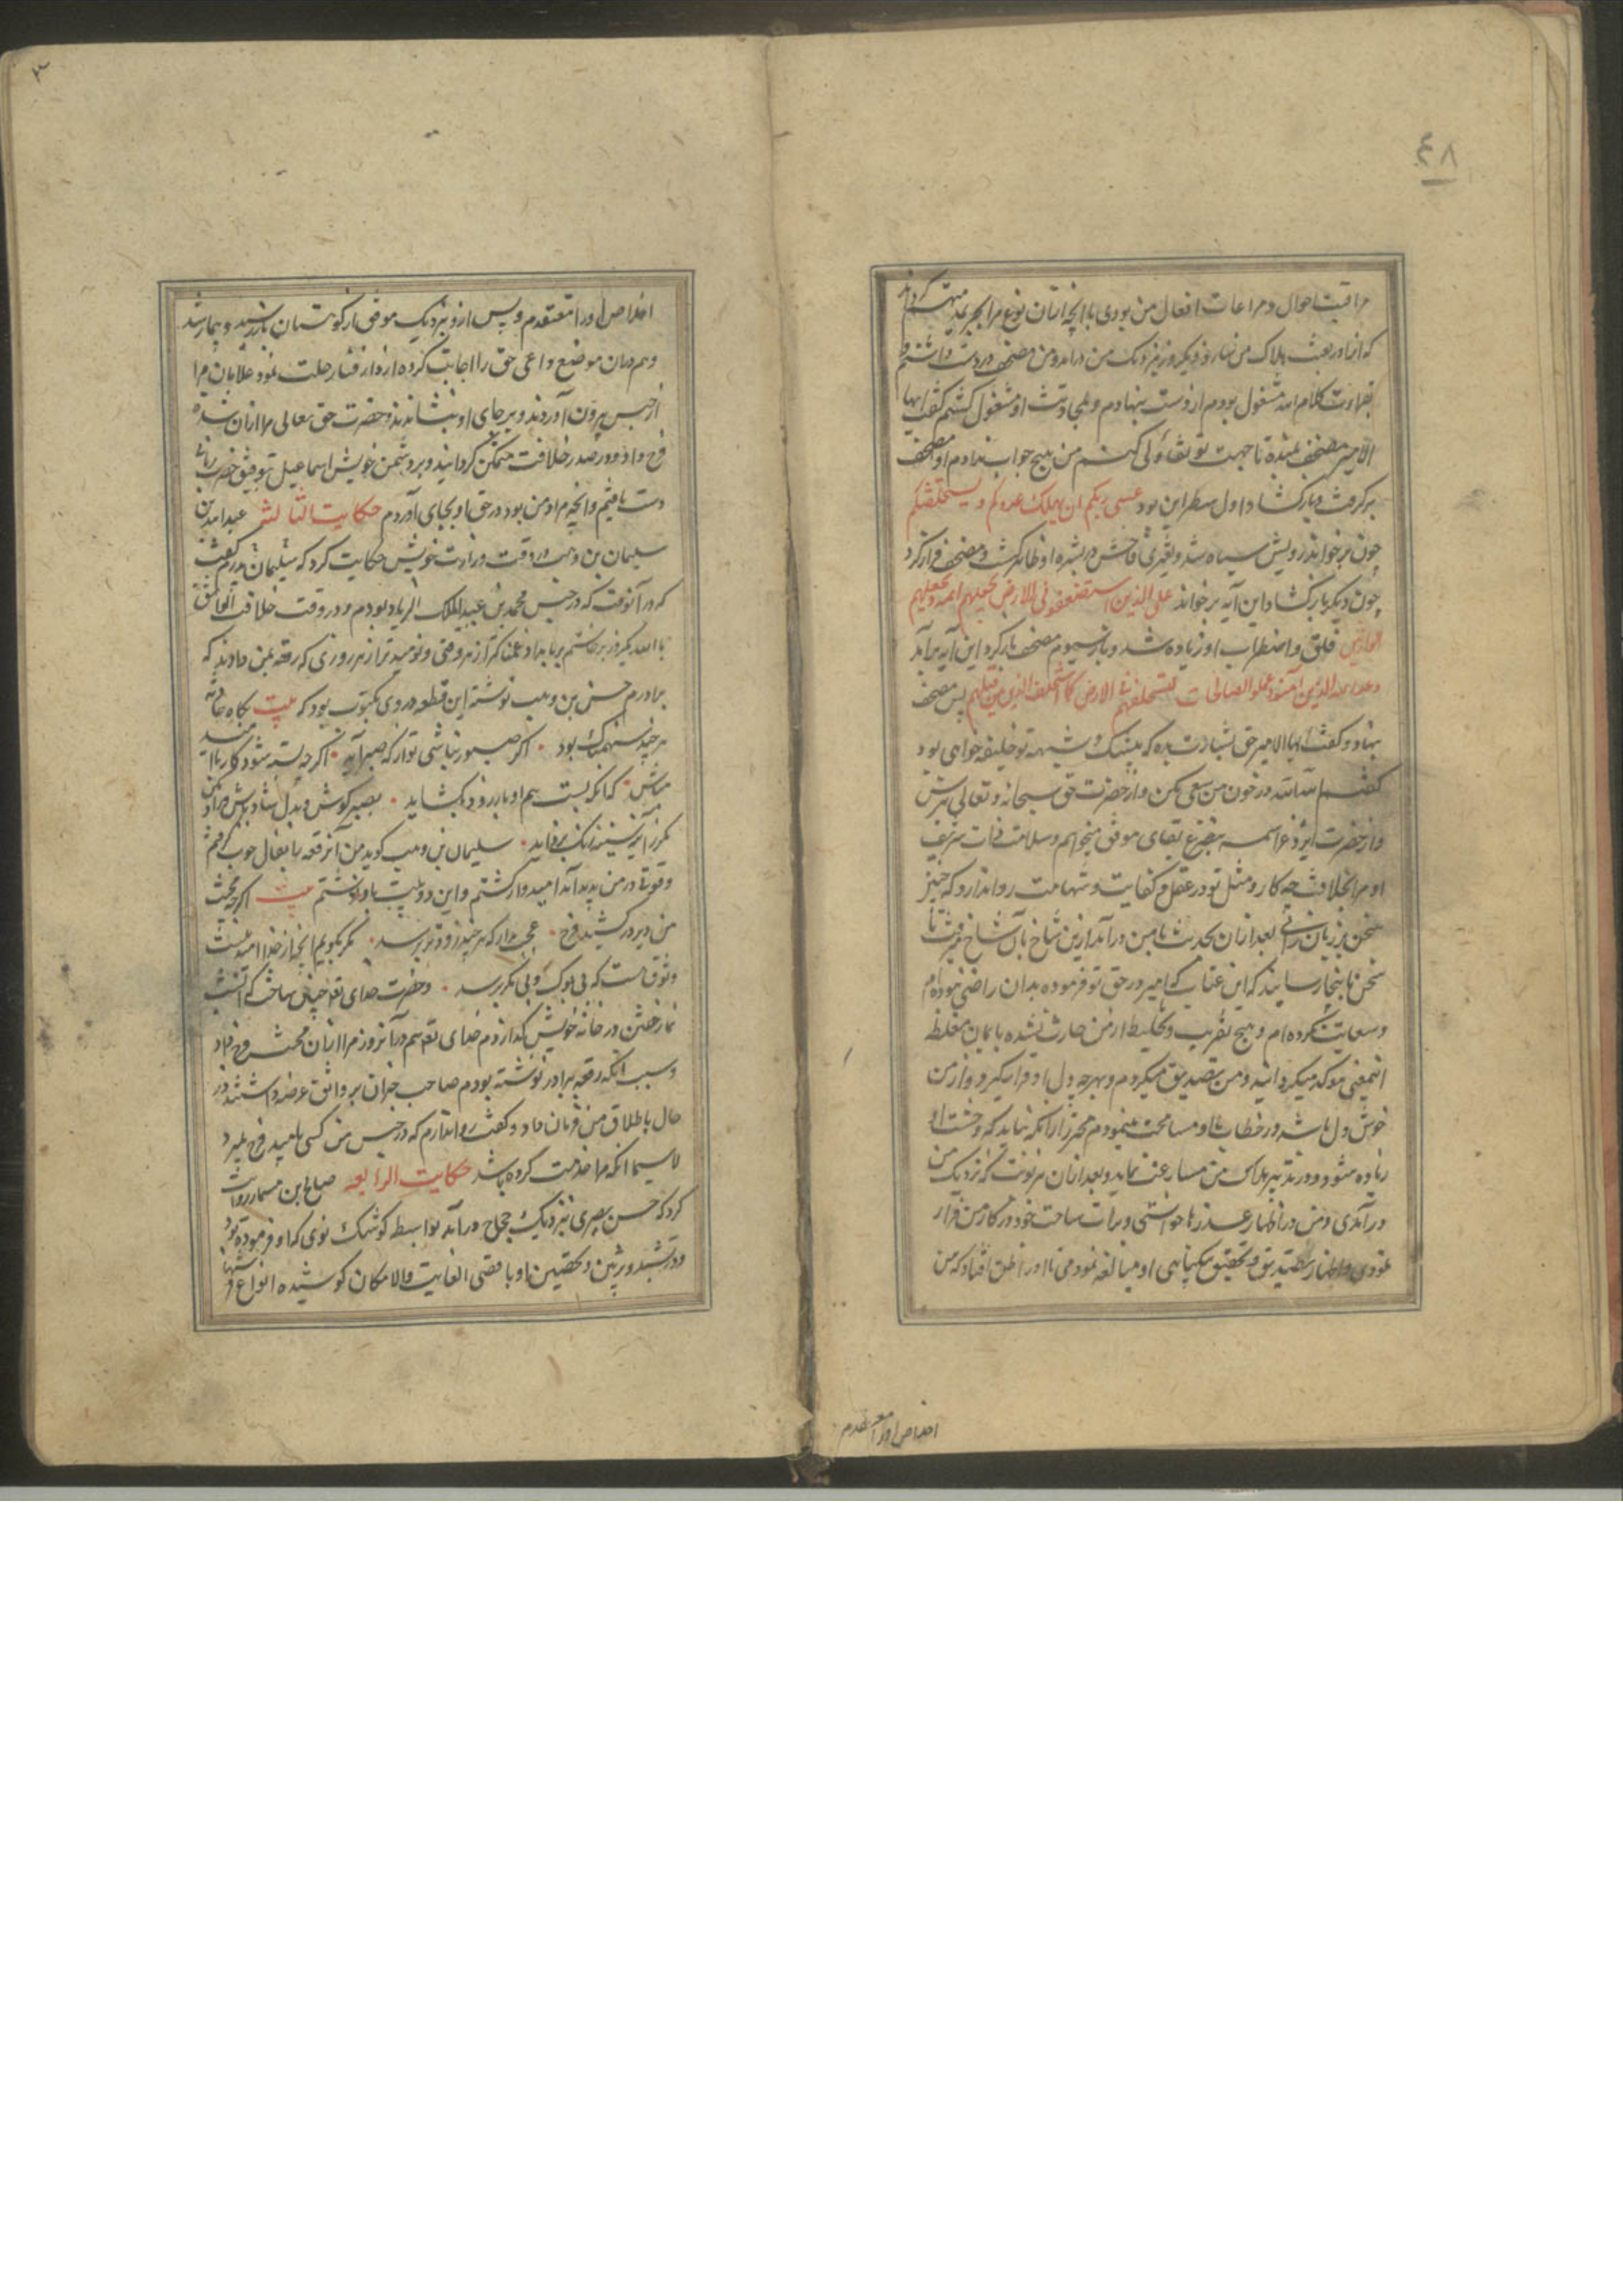 ٤٨
مراقبت احوال و مراعات افعال من بودی با آنچه ازان نوع مرا بجریمه متهم گرداند
که ازا در بعث هلاک من نماید روز دیگر نزدیک من درآمد و من مصحف در دست داشتم و
بقراءت کلام الله مشغول بودم از دست بنهادم و بمحادثت او مشغول گشتم گفت ایها
الامیر مصحف بمن ده تا جهت تو تفاؤلی کنم من هیچ جواب ندادم او مصحف
برگرفت و بازگشاد اول سطر این بود عسی ربکم ان یهلک عدوکم و یستخلفکم
چون برخواند رویش سیاه شد و تغیری فاحش در بشره او ظاهر گشت و مصحف فراز کرد
چون دیگر بار گشاد این آیه برخواند علی الذین استضعفوا فی الارض و نجعلهم ائمة و نجعلهم
الوارثین قلق و اضطراب او زیاده شد و بار سیوم مصحف باز کرد این آیه برآمد
وعد الله الذین آمنوا و عملوا الصالحات لیستخلفنهم فی الارض کما استخلف الذین من قبلهم پس مصحف
بنهاد و گفت ایها الامیر حق بشارت بده که بیشک و شبهه تو خلیفه خواهی بود
گفتم الله الله در خون من سعی مکن و از حضرت حق سبحانه و تعالی بترس
و از حضرت ایزد عز اسمه بتضرع بقای موفق میخواهم و سلامت ذات شریف
او مرا بخلافت چه کار و مثل تو در عقل و کفایت و شهامت روا ندارد که چنین
سخن بر زبان رانی بعد ازان بحدیث با من درآمد ازین شاخ بآن شاخ میرفت تا
سخن ما بینجا رسانید که این عتاب که امیر در حق تو فرموده بدان راضی نبوده ام
و سعایت نکرده ام و هیچ تضریب و تخلیط از من حادث نشده بایمان مغلظه
اینمعنی موکد میگردانید و من تصدیق میکردم و بهرچه دل او قرار گیرد و از من
خوش دل باشد در خطاب با او مسامحت مینمودم محترز ازانکه نباید که وحشت او
زیاده شود و در تدبیر هلاک من مسارعت نماید و بعد ازان هر نوبت که نزدیک من
درآمدی و من در اظهار عذرها خواستی و برات ساحت خود در کار من قرار
نمودی و اظهار تصدیق و تحقیق بیگناهی او مبالغه نمودمی تا او را ظن افتاد که من
اخلاص او را معتقدم
٣
اخلاص او را معتقدم و پس ازو نزدیک موفق از کوهستان باز رسید و بیمار شد
و هم دران موضع داعی حق را اجابت کرده از دار فنا رحلت نمود غلامان مرا
از حبس بیرون آوردند و بر جای او بنشاندند و حضرت حق تعالی مرا ازان شده
فرج داد و در صدر خلافت متمکن گردانید و بر دشمن خویش اسماعیل بتوفیق حضرت
دست یافتم و آنچه مراد من بود در حق او بجای آوردم حکایت الثالثه عبدالله بن
سلیمان بن وهب در وقت وزارت خویش حکایت کرد که سلیمان پدرم گفت
که در آنوقت که در حبس محمد بن عبدالملک الزیات بودم و در وقت خلافت الواثق
بالله یکروز برخاستم بر بامداد غمناکتر از هر وقتی و نومیدتر از هر روزی که رقعه بمن دادند که
برادرم حسن بن وهب نوشته این قطعه در وی مکتوب بود که بیت
هر چند سهمناک بود · اگر صبور نباشی تو از که صبر آید · اگر چه بسته شود کارها
مباش · که آنکه بست هم او باز زود بگشاید · بصبر کوش و بدل شاد باش
سلیمان بن وهب گوید من آنرقعه را بفال خوب گرفتم
و قوتی در من پدید آمد امیدوار گشتم و این دو بیت باو نوشتم بیت اگر چه محنت
من دیر در کشید فرج · عجب مدار که هر چند زودتر برسد · مگر بگویم آنچ از خدا امید منست
وثوق هست که بی بوک و بی مگر برسد · و حضرت خدای تعالی چنان ساخت که آنشب
نماز خفتن در خانه خویش گذاردم خدای تعالی هم درآنروز مرا ازان محنت فرج داد
و سبب آنکه رقعه برادر نوشته بودم صاحب خبران بر واثق عرضه داشتند در
حال باطلاق من فرمان داد و گفت روا ندارم که در حبس من کسی بامید فرج بمیرد
لاسیما آنکه مرا خدمت کرده باشد حکایت الرابعه صالح بن مسمار روایت
کرد که حسن بصری نزدیک حجاج درآمد بواسطه کوشک نوی که او فرموده بود
و در تشیید و تزیین و تحصین او باقصی الغایت والامکان کوشیده انواع فرشها